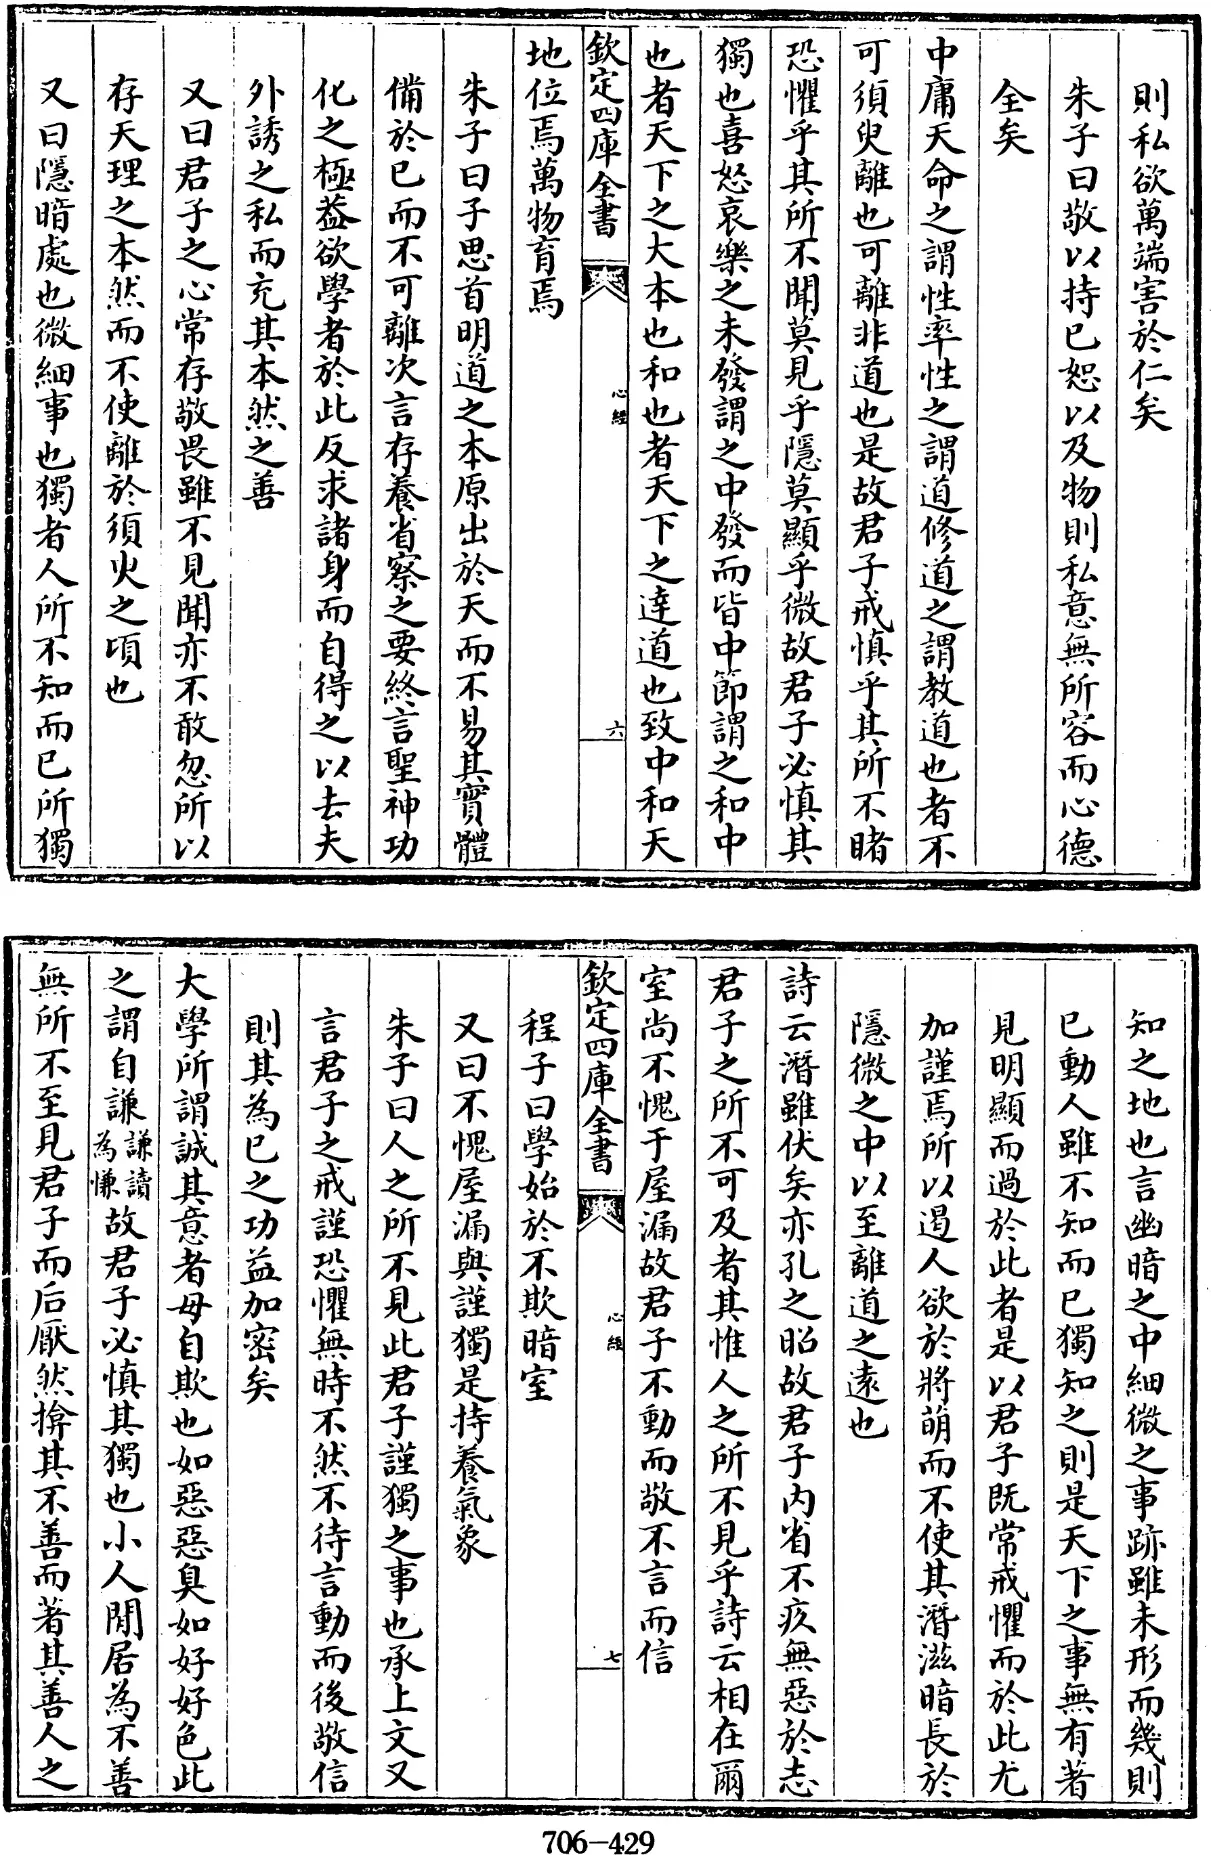 則私欲萬端害於仁矣
朱子曰敬以持已恕以及物則私意無所容而心德
全矣
中庸天命之謂性率性之謂道修道之謂教道也者不
可須臾離也可離非道也是故君子戒慎乎其所不睹
恐懼乎其所不聞莫見乎隱莫顯乎微故君子必慎其
獨也喜怒哀樂之未發謂之中發而皆中節謂之和中
也者天下之大本也和也者天下之達道也致中和天
欽定四庫全書
心經
六
地位焉萬物育焉
朱子曰子思首明道之本原出於天而不易其實體
備於已而不可離次言存養省察之要終言聖神功
化之極葢欲學者於此反求諸身而自得之以去夫
外誘之私而充其本然之善
又曰君子之心常存敬畏雖不見聞亦不敢忽所以
存天理之本然而不使離於須臾之頃也
又曰隱暗處也微細事也獨者人所不知而已所獨
知之地也言幽暗之中細微之事跡雖未形而幾則
已動人雖不知而已獨知之則是天下之事無有著
見明顯而過於此者是以君子既常戒懼而於此尤
加謹焉所以遏人欲於將萌而不使其潛滋暗長於
隱微之中以至離道之遠也
詩云潛雖伏矣亦孔之昭故君子内省不疚無惡於志
君子之所不可及者其惟人之所不見乎詩云相在爾
室尚不愧于屋漏故君子不動而敬不言而信
欽定四庫全書
心經
七
程子曰學始於不欺暗室
又曰不愧屋漏與謹獨是持養氣象
朱子曰人之所不見此君子謹獨之事也承上文又
言君子之戒謹恐懼無時不然不待言動而後敬信
則其為已之功益加密矣
大學所謂誠其意者毋自欺也如惡惡臭如好好色此
之謂自謙謙讀為慊故君子必慎其獨也小人閒居為不善
無所不至見君子而后厭然揜其不善而著其善人之
706-429